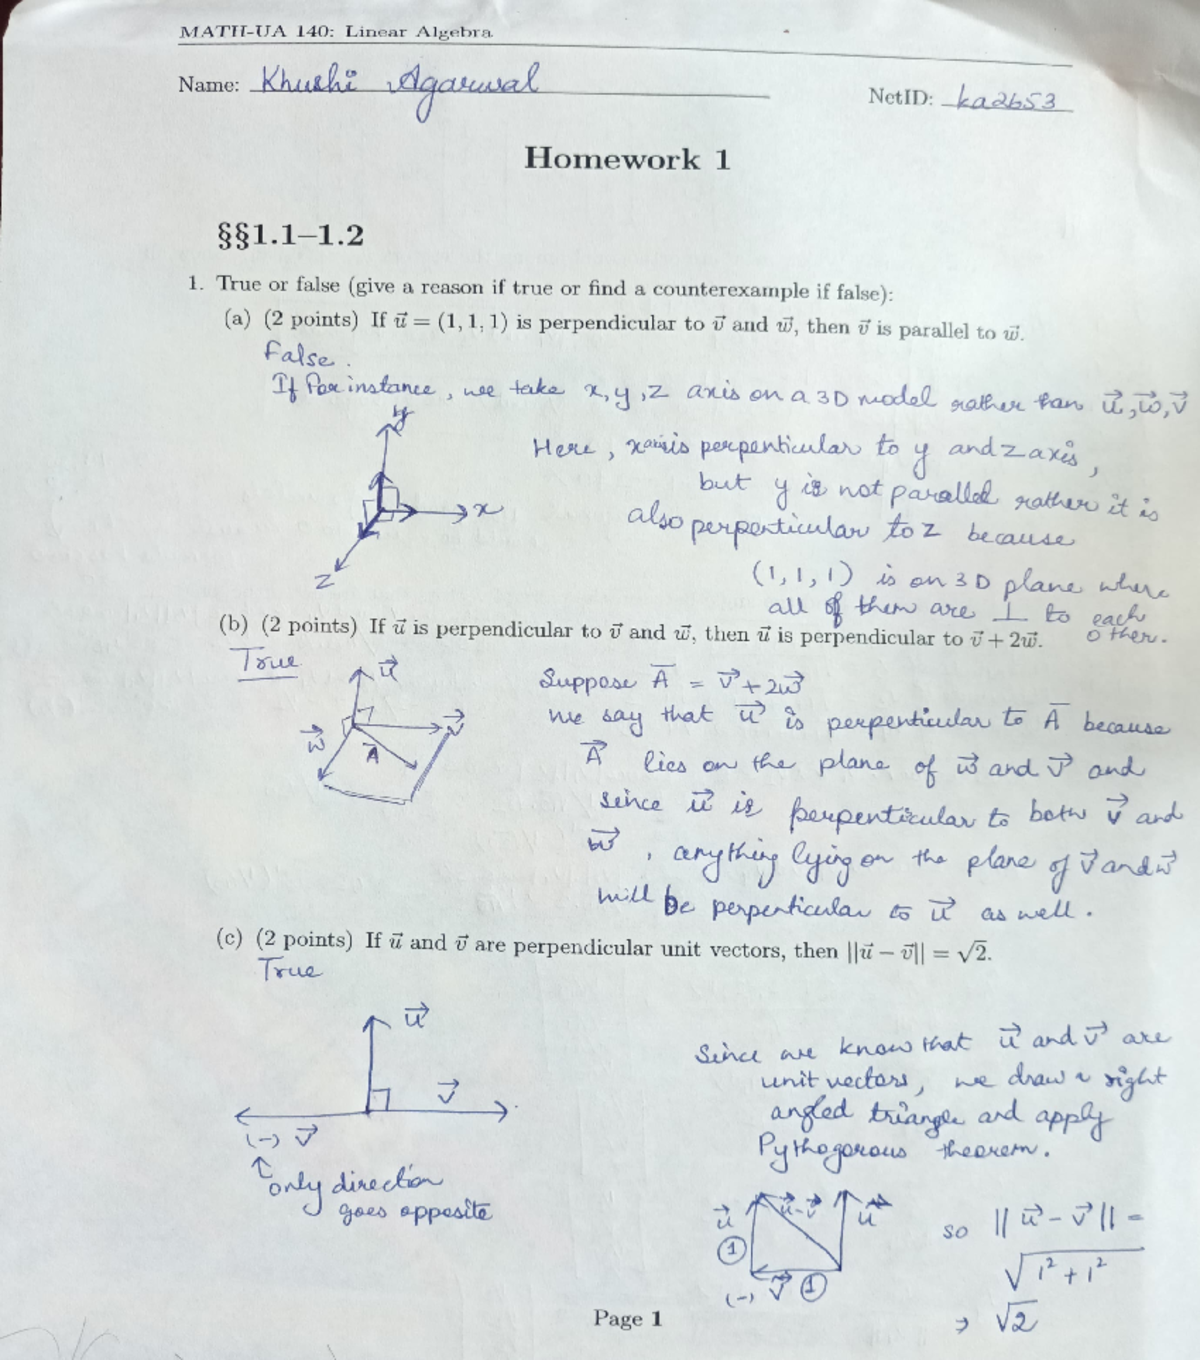 MATH-UA 140: Linear Algebra
Name: Khushi Agarwal
NetID: ka2653
Homework 1
§§1.1–1.2
1. True or false (give a reason if true or find a counterexample if false):
(a) (2 points) If u⃗ = (1, 1, 1) is perpendicular to v⃗ and w⃗, then v⃗ is parallel to w⃗.
False.
If for instance, we take x, y, z axis on a 3D model rather than u⃗, w⃗, v⃗
y
x
z
Here, x axis is perpenticular to y and z axis,
but y is not parallel rather it is
also perpenticular to z because
(1, 1, 1) is on 3D plane where
all of them are ⊥ to each
other.
(b) (2 points) If u⃗ is perpendicular to v⃗ and w⃗, then u⃗ is perpendicular to v⃗ + 2w⃗.
True
u⃗
v⃗
w⃗
A⃗
Suppose A̅ = v⃗ + 2w⃗
we say that u⃗ is perpenticular to A̅ because
A⃗ lies on the plane of w⃗ and v⃗ and
since u⃗ is perpenticular to both v⃗ and
w⃗, anything lying on the plane of v⃗ and w⃗
will be perpenticular to u⃗ as well.
(c) (2 points) If u⃗ and v⃗ are perpendicular unit vectors, then ||u⃗ − v⃗|| = √2.
True
u⃗
v⃗
(-) v⃗
↑ only direction
goes opposite
Since we know that u⃗ and v⃗ are
unit vectors, we draw a right
angled triangle and apply
Pythogorous theorem.
u⃗ ① u⃗-v⃗ u⃗
(-) v⃗ ①
so || u⃗ - v⃗ || =
√1² + 1²
⇒ √2
Page 1